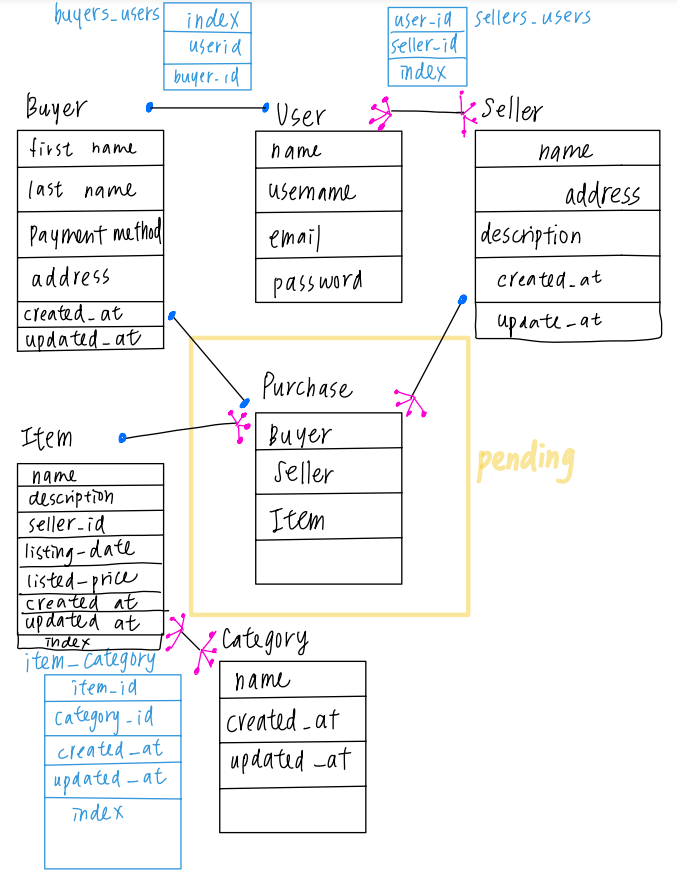 buyers_users
index
userid
buyer_id
user_id
seller_id
index
sellers_users
Buyer
first name
last name
payment method
address
created_at
updated_at
User
name
username
email
password
Seller
name
address
description
created_at
update_at
Purchase
Buyer
Seller
Item
pending
Item
name
description
seller_id
listing_date
listed_price
created at
updated at
index
item_category
item_id
category_id
created_at
updated_at
index
Category
name
created_at
updated_at